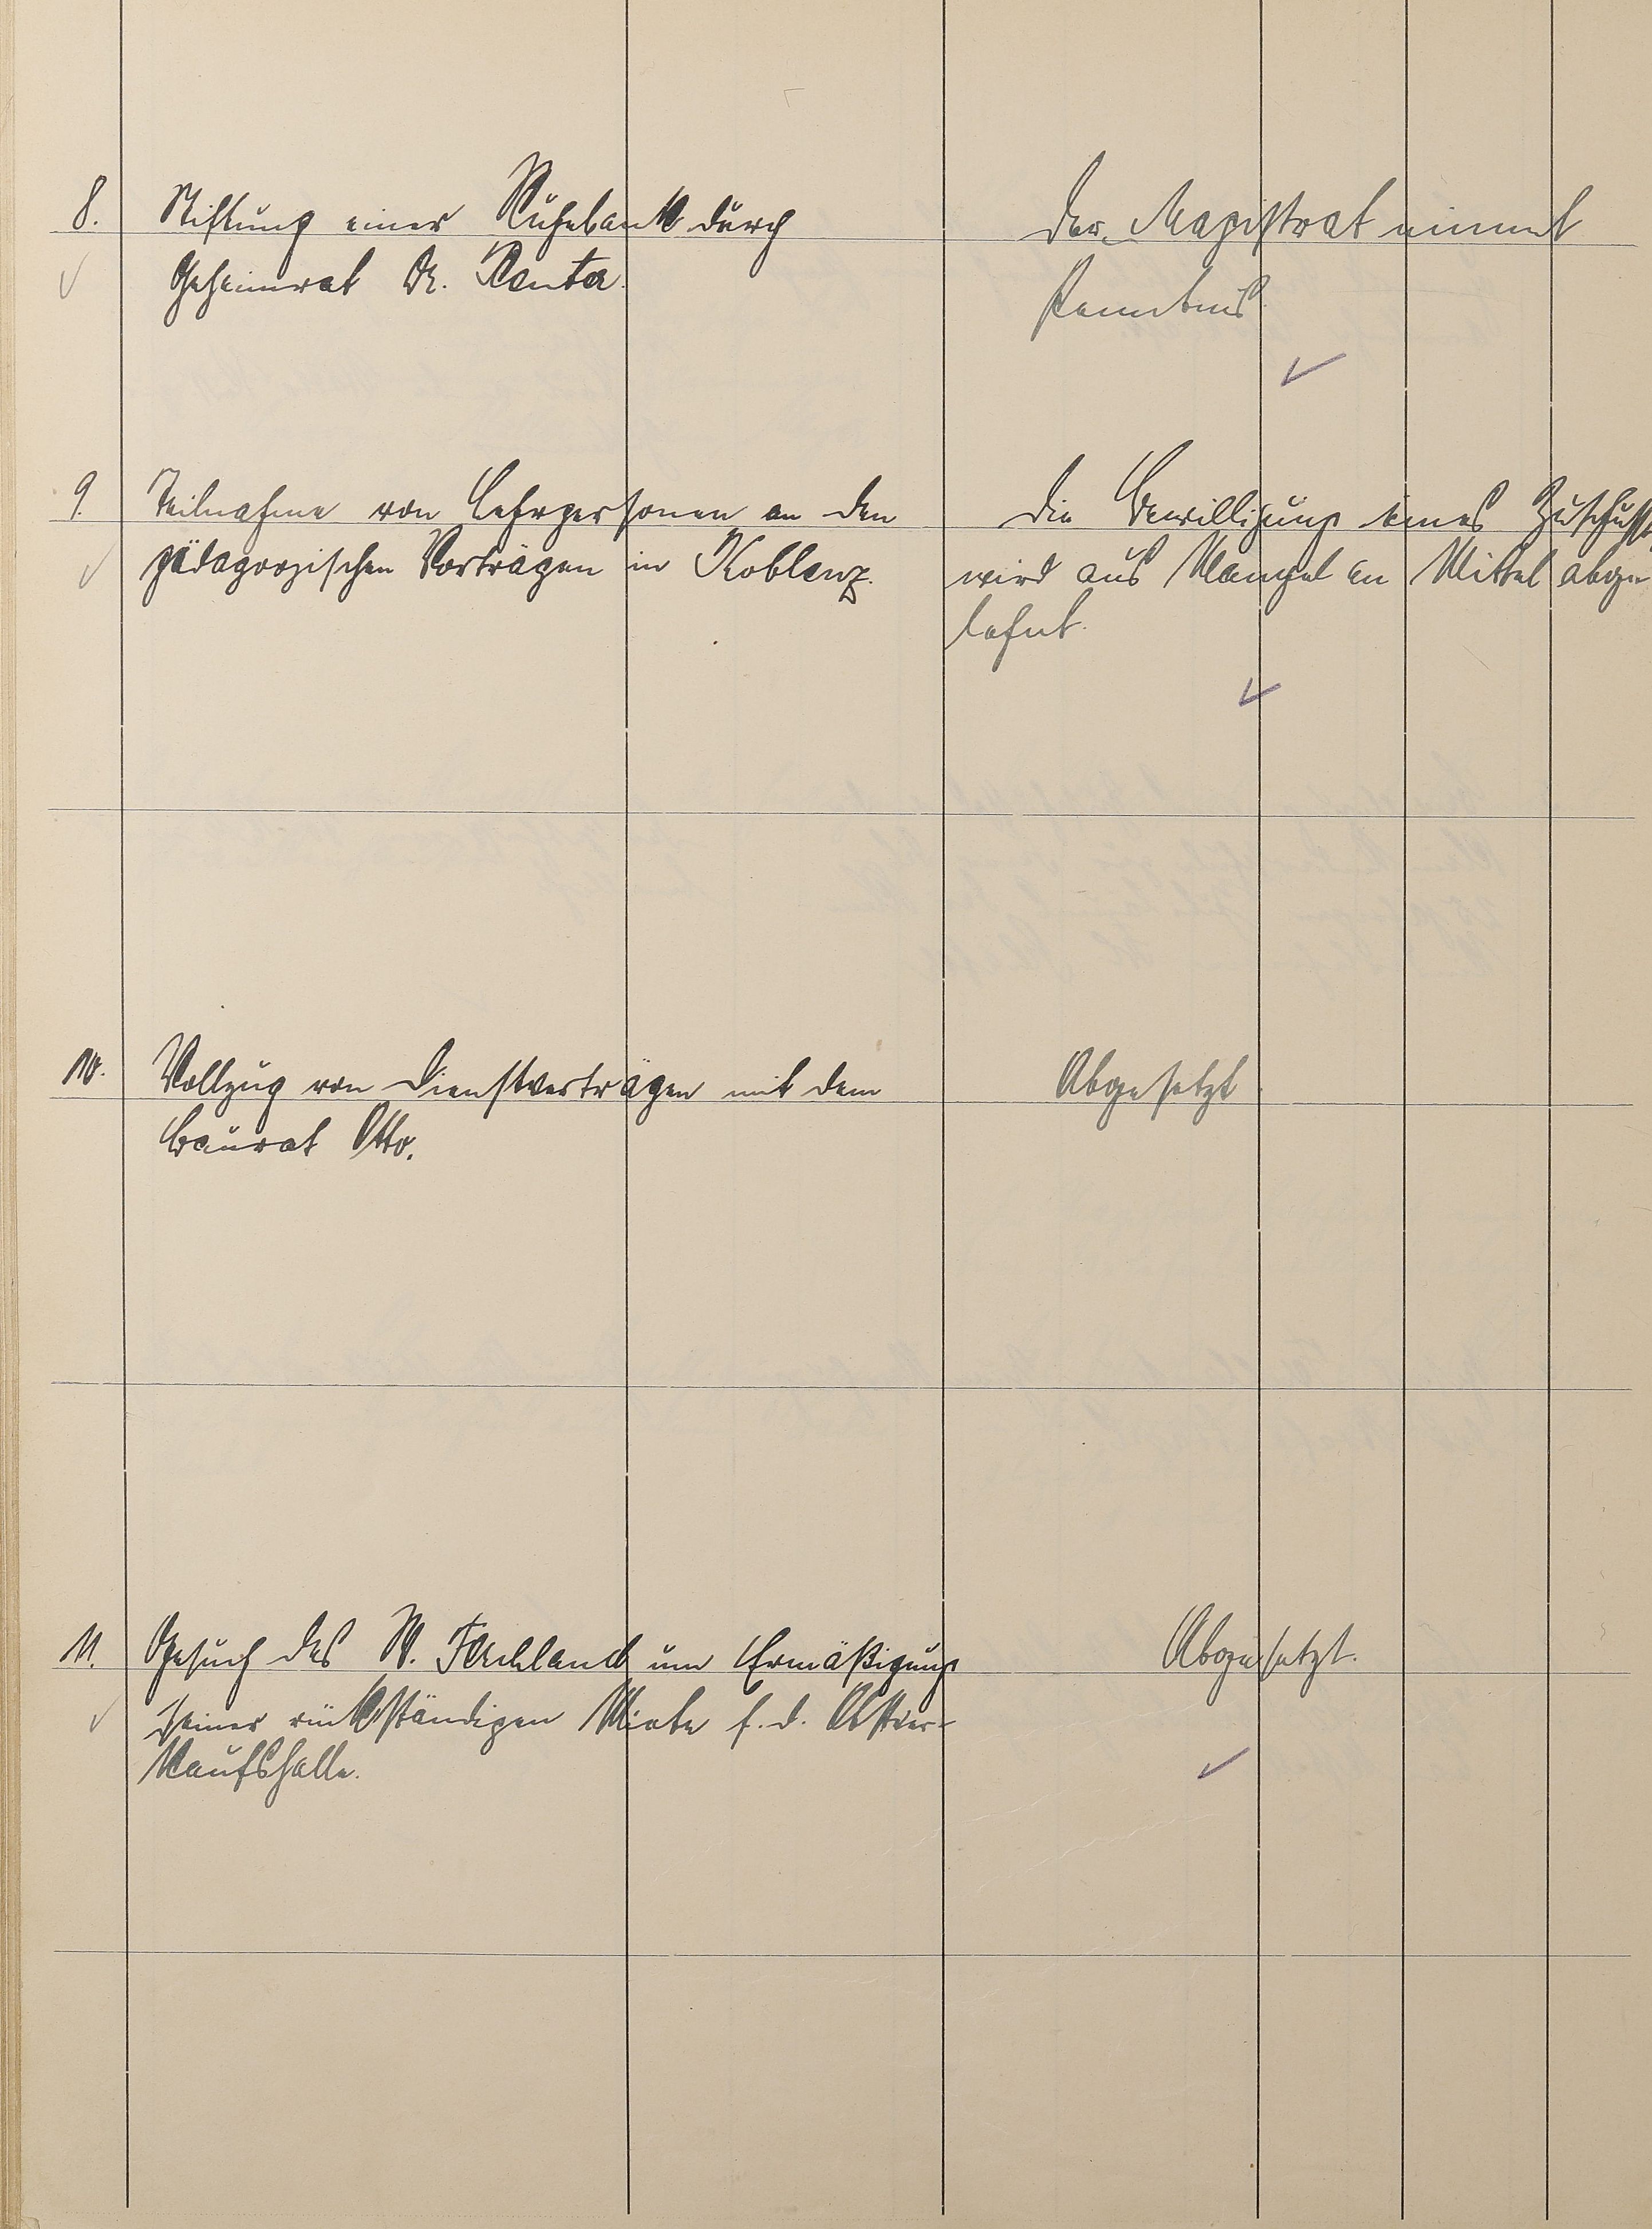 8. Stiftung einer Ruhebank durch
Geheimrat Dr.
Der Magistrat nimmt
Kenntnis.
9. Teilnahme von Lehrpersonen an den
pädagogischen Vorträgen in Koblenz.
Die Bewilligung eines Zuschusses
wird aus Mangel an Mittel abge-
lehnt.
10. Vollzug von Dienstverträgen mit dem
Baurat Otto.
Abgesetzt.
11. Gesuch des W. um Ermäßigung
seiner rückständigen Miete f. d. Obstver-
kaufshalle.
Abgesetzt.